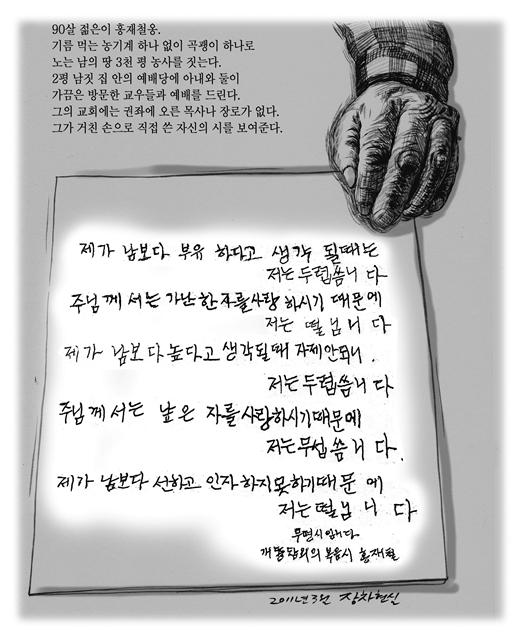 90살 젊은이 홍재철옹.
기름 먹는 농기계 하나 없이 곡괭이 하나로
노는 남의 땅 3천 평 농사를 짓는다.
2평 남짓 집 안의 예배당에 아내와 둘이
가끔은 방문한 교우들과 예배를 드린다.
그의 교회에는 권좌에 오른 목사나 장로가 없다.
그가 거친 손으로 직접 쓴 자신의 시를 보여준다.
제가 남보다 부유 하다고 생각 될때는
저는 두렵씀니 다
주님께 서는 가난한자를사랑 하시기 때문에
저는 떨님니 다
제가 남보다높다고생각될때 자제안되니.
저는두렵씀니 다
주님께 서는 낮은 자를사랑하시기때문에
저는무섭씀니 다.
제가 남보다 선하고 인자하지못하기때문 에
저는떨님 니 다
무명시입니다
복음시 홍재철
2011년3월 장차현실